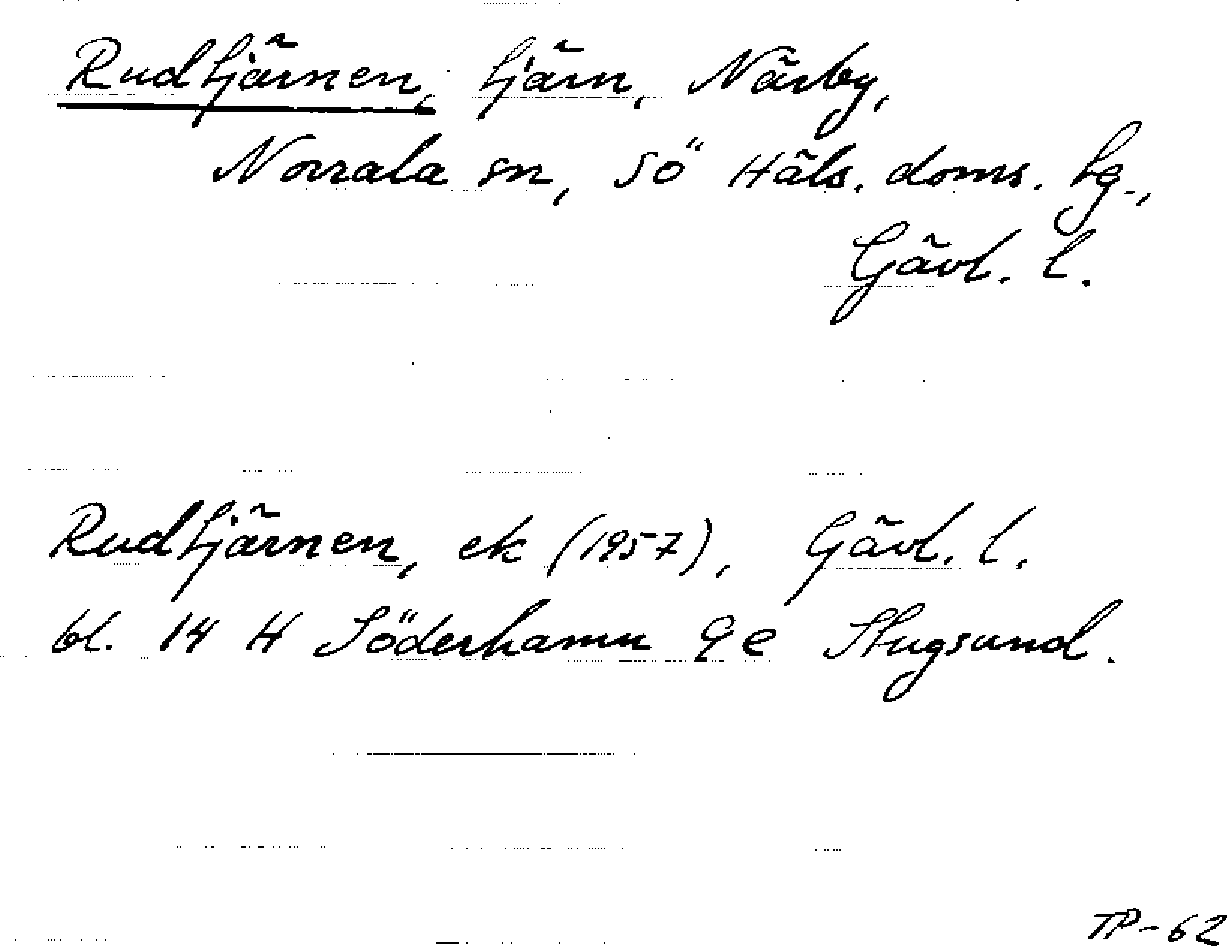 Rudtjärnen, tjärn, Närby,
Norrala sn, Sö Häls. doms. tg.,
Gävl. l.
Rudtjärnen, ek (1957), Gävl. l.
bl. 14 H Söderhamn 9 e Stugsund.
TP-62